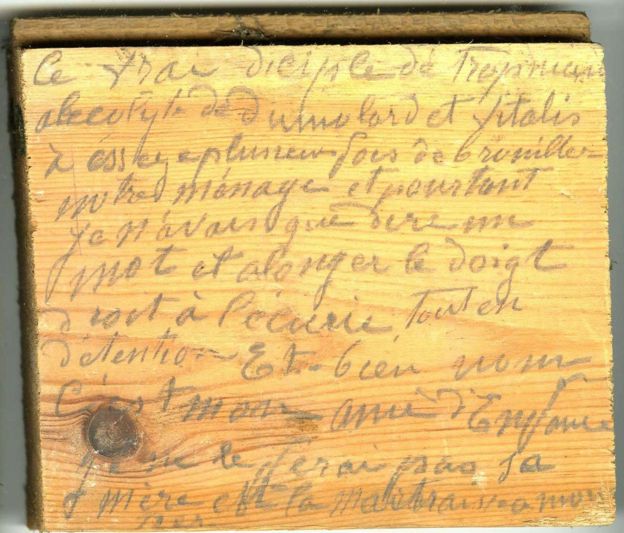 Ce vrai diciple de Tropmann
alecolyte de Dumolard et Vitalis
à ésseye plusieur fois de brouiller
notre ménage et pourtant
je n'avais que dire un
mot et alonger le doigt
droit à l'écurie tout en
détention Et bien nom
C'est mon ami d'Enfance
je ne le ferai pas Sa
mère est la maitraisse a mon
Per